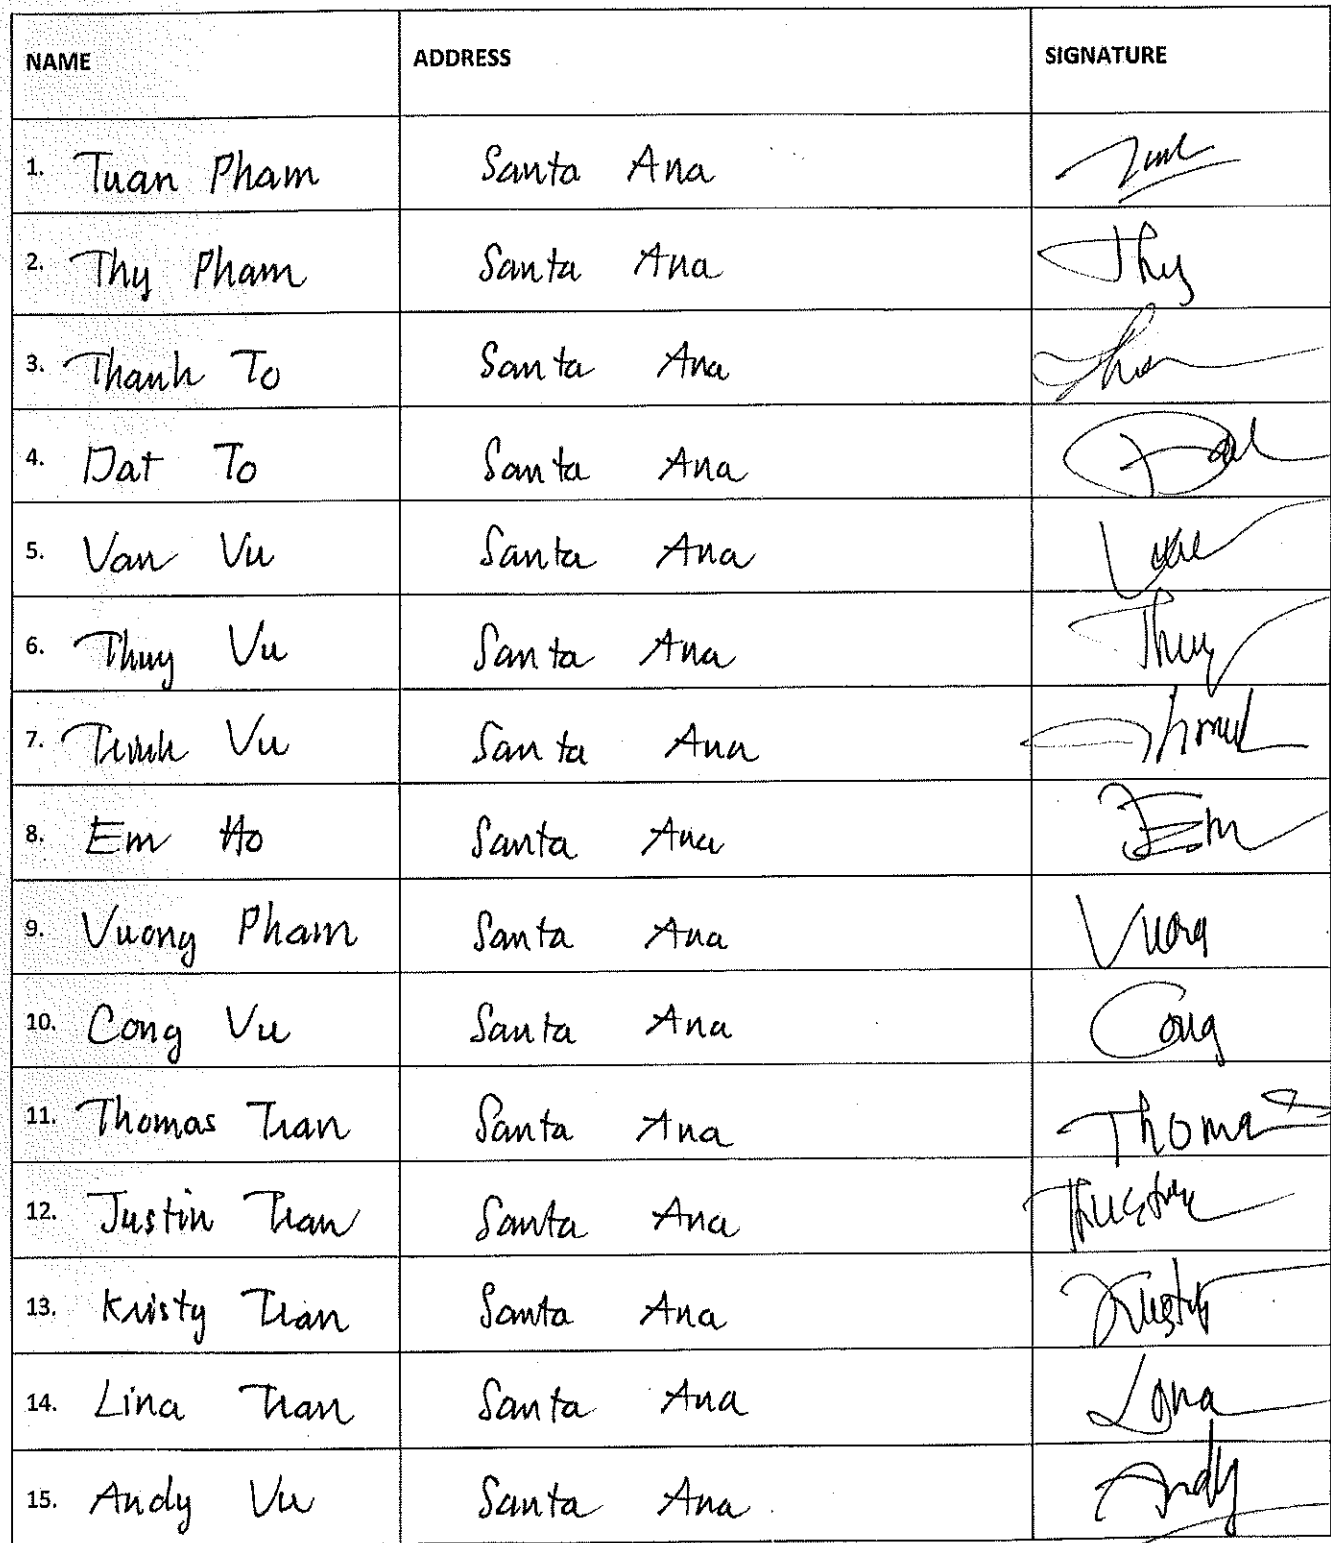 NAME ADDRESS SIGNATURE
1. Tuan Pham Santa Ana
2. Thy Pham Santa Ana Thy
3. Thanh To Santa Ana
4. Dat To Santa Ana Dat
5. Van Vu Santa Ana
6. Thuy Vu Santa Ana Thuy
7. Trinh Vu Santa Ana
8. Em Ho Santa Ana Em
9. Vuong Pham Santa Ana Vuong
10. Cong Vu Santa Ana Cong
11. Thomas Tran Santa Ana Thomas
12. Justin Tran Santa Ana
13. Kristy Tran Santa Ana Kristy
14. Lina Tran Santa Ana Lina
15. Andy Vu Santa Ana Andy